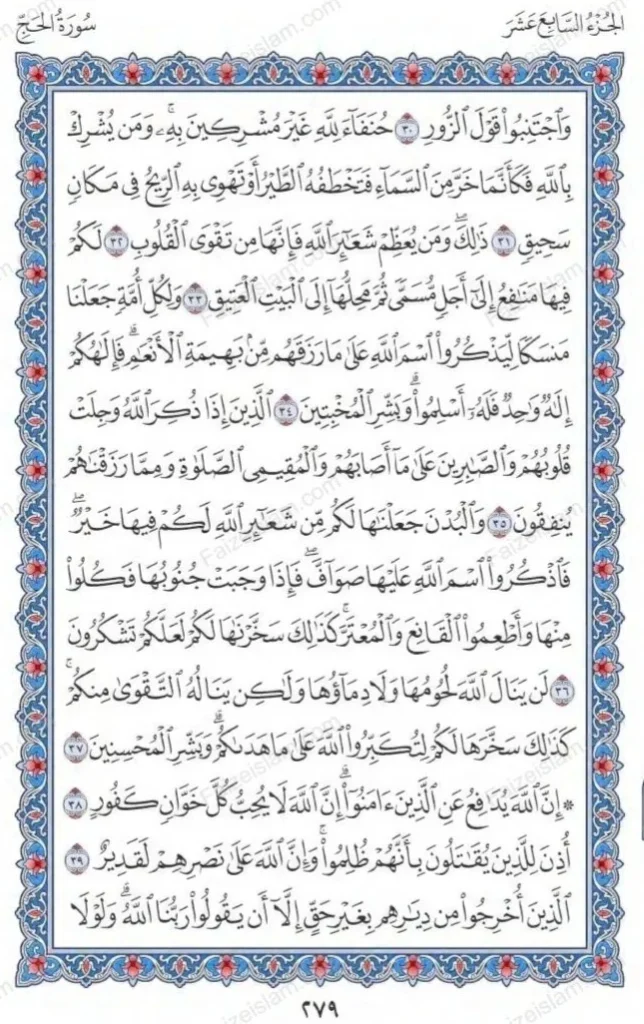 الجُزْءُ السَّابِعَ عَشَرَ
سُورَةُ الحَجِّ
وَٱجْتَنِبُوا۟ قَوْلَ ٱلزُّورِ ٣٠ حُنَفَآءَ لِلَّهِ غَيْرَ مُشْرِكِينَ بِهِۦۚ وَمَن يُشْرِكْ
بِٱللَّهِ فَكَأَنَّمَا خَرَّ مِنَ ٱلسَّمَآءِ فَتَخْطَفُهُ ٱلطَّيْرُ أَوْ تَهْوِى بِهِ ٱلرِّيحُ فِى مَكَانٍ
سَحِيقٍ ٣١ ذَٰلِكَۖ وَمَن يُعَظِّمْ شَعَٰٓئِرَ ٱللَّهِ فَإِنَّهَا مِن تَقْوَى ٱلْقُلُوبِ ٣٢ لَكُمْ
فِيهَا مَنَٰفِعُ إِلَىٰٓ أَجَلٍ مُّسَمًّى ثُمَّ مَحِلُّهَآ إِلَى ٱلْبَيْتِ ٱلْعَتِيقِ ٣٣ وَلِكُلِّ أُمَّةٍ جَعَلْنَا
مَنسَكًا لِّيَذْكُرُوا۟ ٱسْمَ ٱللَّهِ عَلَىٰ مَا رَزَقَهُم مِّنۢ بَهِيمَةِ ٱلْأَنْعَٰمِۗ فَإِلَٰهُكُمْ
إِلَٰهٌ وَٰحِدٌ فَلَهُۥٓ أَسْلِمُوا۟ۗ وَبَشِّرِ ٱلْمُخْبِتِينَ ٣٤ ٱلَّذِينَ إِذَا ذُكِرَ ٱللَّهُ وَجِلَتْ
قُلُوبُهُمْ وَٱلصَّٰبِرِينَ عَلَىٰ مَآ أَصَابَهُمْ وَٱلْمُقِيمِى ٱلصَّلَوٰةِ وَمِمَّا رَزَقْنَٰهُمْ
يُنفِقُونَ ٣٥ وَٱلْبُدْنَ جَعَلْنَٰهَا لَكُم مِّن شَعَٰٓئِرِ ٱللَّهِ لَكُمْ فِيهَا خَيْرٌۖ
فَٱذْكُرُوا۟ ٱسْمَ ٱللَّهِ عَلَيْهَا صَوَآفَّۖ فَإِذَا وَجَبَتْ جُنُوبُهَا فَكُلُوا۟
مِنْهَا وَأَطْعِمُوا۟ ٱلْقَانِعَ وَٱلْمُعْتَرَّۚ كَذَٰلِكَ سَخَّرْنَٰهَا لَكُمْ لَعَلَّكُمْ تَشْكُرُونَ
٣٦ لَن يَنَالَ ٱللَّهَ لُحُومُهَا وَلَا دِمَآؤُهَا وَلَٰكِن يَنَالُهُ ٱلتَّقْوَىٰ مِنكُمْۚ
كَذَٰلِكَ سَخَّرَهَا لَكُمْ لِتُكَبِّرُوا۟ ٱللَّهَ عَلَىٰ مَا هَدَىٰكُمْۗ وَبَشِّرِ ٱلْمُحْسِنِينَ ٣٧
* إِنَّ ٱللَّهَ يُدَٰفِعُ عَنِ ٱلَّذِينَ ءَامَنُوٓا۟ۗ إِنَّ ٱللَّهَ لَا يُحِبُّ كُلَّ خَوَّانٍ كَفُورٍ ٣٨
أُذِنَ لِلَّذِينَ يُقَٰتَلُونَ بِأَنَّهُمْ ظُلِمُوا۟ۚ وَإِنَّ ٱللَّهَ عَلَىٰ نَصْرِهِمْ لَقَدِيرٌ ٣٩
ٱلَّذِينَ أُخْرِجُوا۟ مِن دِيَٰرِهِم بِغَيْرِ حَقٍّ إِلَّآ أَن يَقُولُوا۟ رَبُّنَا ٱللَّهُۗ وَلَوْلَا
٢٧٩
Faizeislam.com